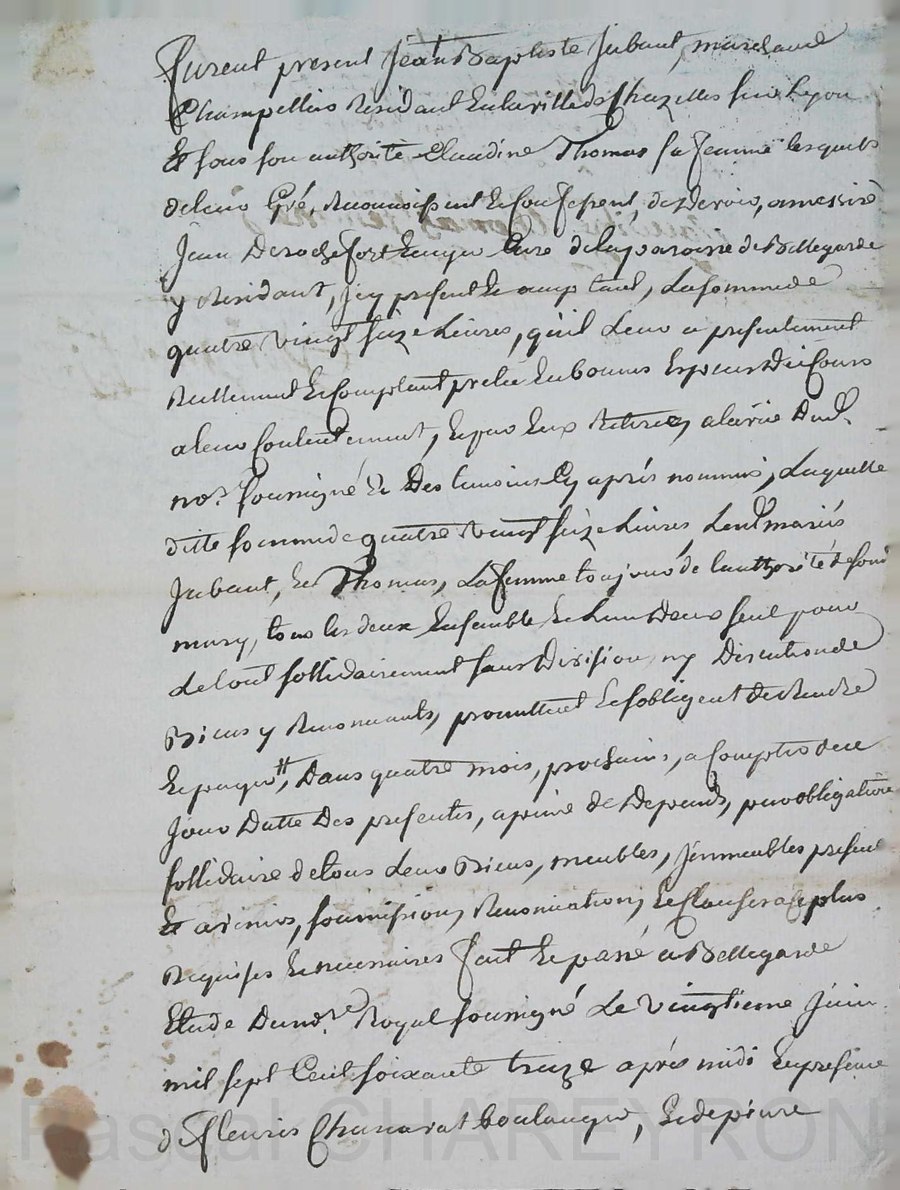 Furent present Jean Baptiste Jubaut, marchand
Chappellier Residant En la ville de Chazelles sur Lyon
Et sous son authorite Claudine Thomas sa femme lesquels
de leur Gré, Reconnoissent Et Confessent, de Devoir, a messire
Jean Derochefort Ecuyer Curé de la paroisse de Bellegarde
y Residant, Icy present Et acceptant, La somme de
quatre vingt seize Livres, qu'il Leur a presentement
Reellement Et Comptant pretée En bonnes Especes Du Cours
a leur Contentement, Et par Eux Retirée, a la vüe Dud.
nore. soussigné Et Des temoins Cy après nommés, Laquelle
ditte somme de quatre vingt seize Livres, Lesd. mariés
Jubaut, Et Thomas, La femme toujours de l'authorité de son d
mary, tous les deux Ensemble Et L'un D'eux seul pour
Le tout sollidairement sans Division, ny Discution de
Biens y Renonceants, promettent Et s'obligent de Rendre
Et payer, Dans quatre mois, prochains, a Compter de ce
Jour Datte Des presentes, a peine de Depends, par obligation
sollidaire de tous Leurs Biens, meubles, Immeubles presents
Et avenirs, soumissions, Renonciations, Et Clauses a ce plus
Requises Et necessaires Fait Et passé a Bellegarde
Etude Dunore. Royal soussigné Le vingtieme Juin
mil sept Cent soixante treize après midi En presence
de Fleuris boulanger, Et de pierre
Pascal CHAREYRON